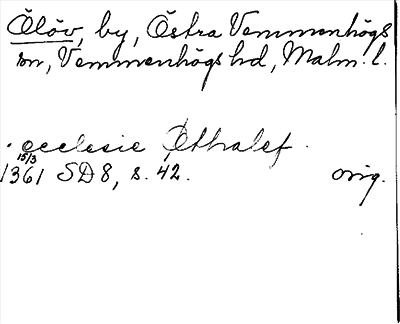 Ölöv, by, Östra Vemmenhögs
sn, Vemmenhögs hd, Malm. l.
. ecclesie Øthalef.
15/3
1361 SD 8, s. 42. orig.